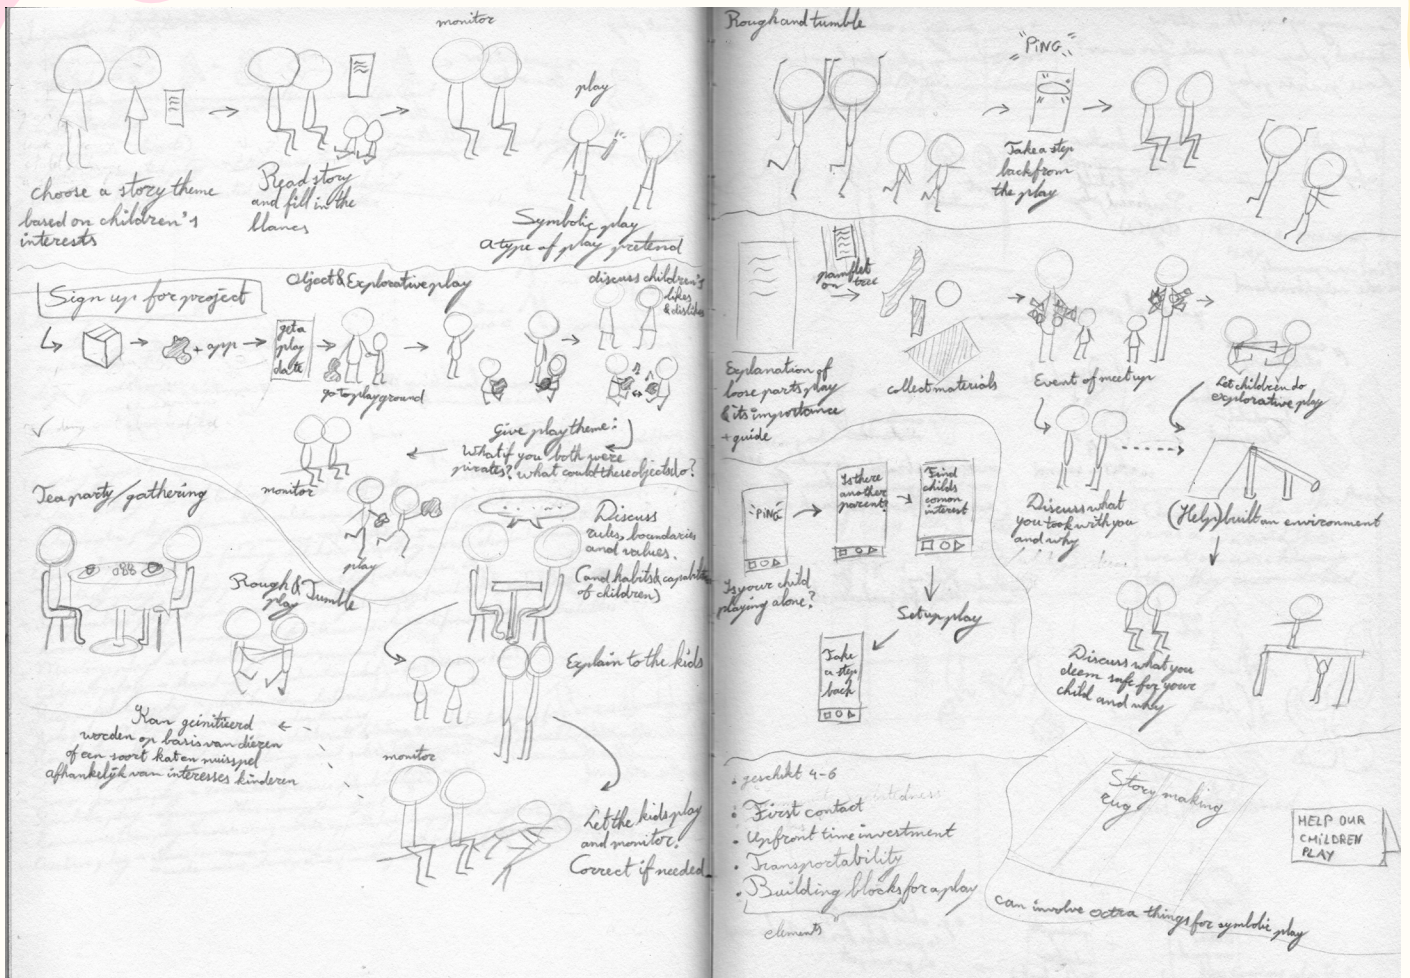 monitor
play
choose a story theme
based on children's
interests
Read story
and fill in the
blancs
Symbolic play
a type of play pretend
Sign up for project
Object & Explorative play
discuss children's
likes
& dislikes
+ app
get a
play
date
go to playground
Give play theme:
What if you both were
pirates? what could these objects do?
monitor
play
Tea party/gathering
Rough & Tumble
play
Discuss
rules, boundaries
and values.
(and habits & capabilities
of children)
Explain to the kids
Kan geinitieerd
worden op basis van dieren
of een soort kat en muisspel
afhankelijk van interesses kinderen
monitor
Let the kids play
and monitor.
Correct if needed
Rough and tumble
PING
Take a step
back from
the play
pamflet
on tree
Explanation of
loose parts play
& its importance
+ guide
collect materials
Event of meet up
Let children do
explorative play
Discuss what
you took with you
and why
(Help) built an environment
PING
Is there
another
parent?
Find
childs
comon
interest
Is your child
playing alone?
Set up play
Take
a step
back
Discuss what you
deem safe for your
child and why
• geschikt 4-6
• First contact
• Upfront time investment
• Transportability
• Building blocks for a play
elements
Story making
rug
HELP OUR
CHILDREN
PLAY
can involve extra things for symbolic play